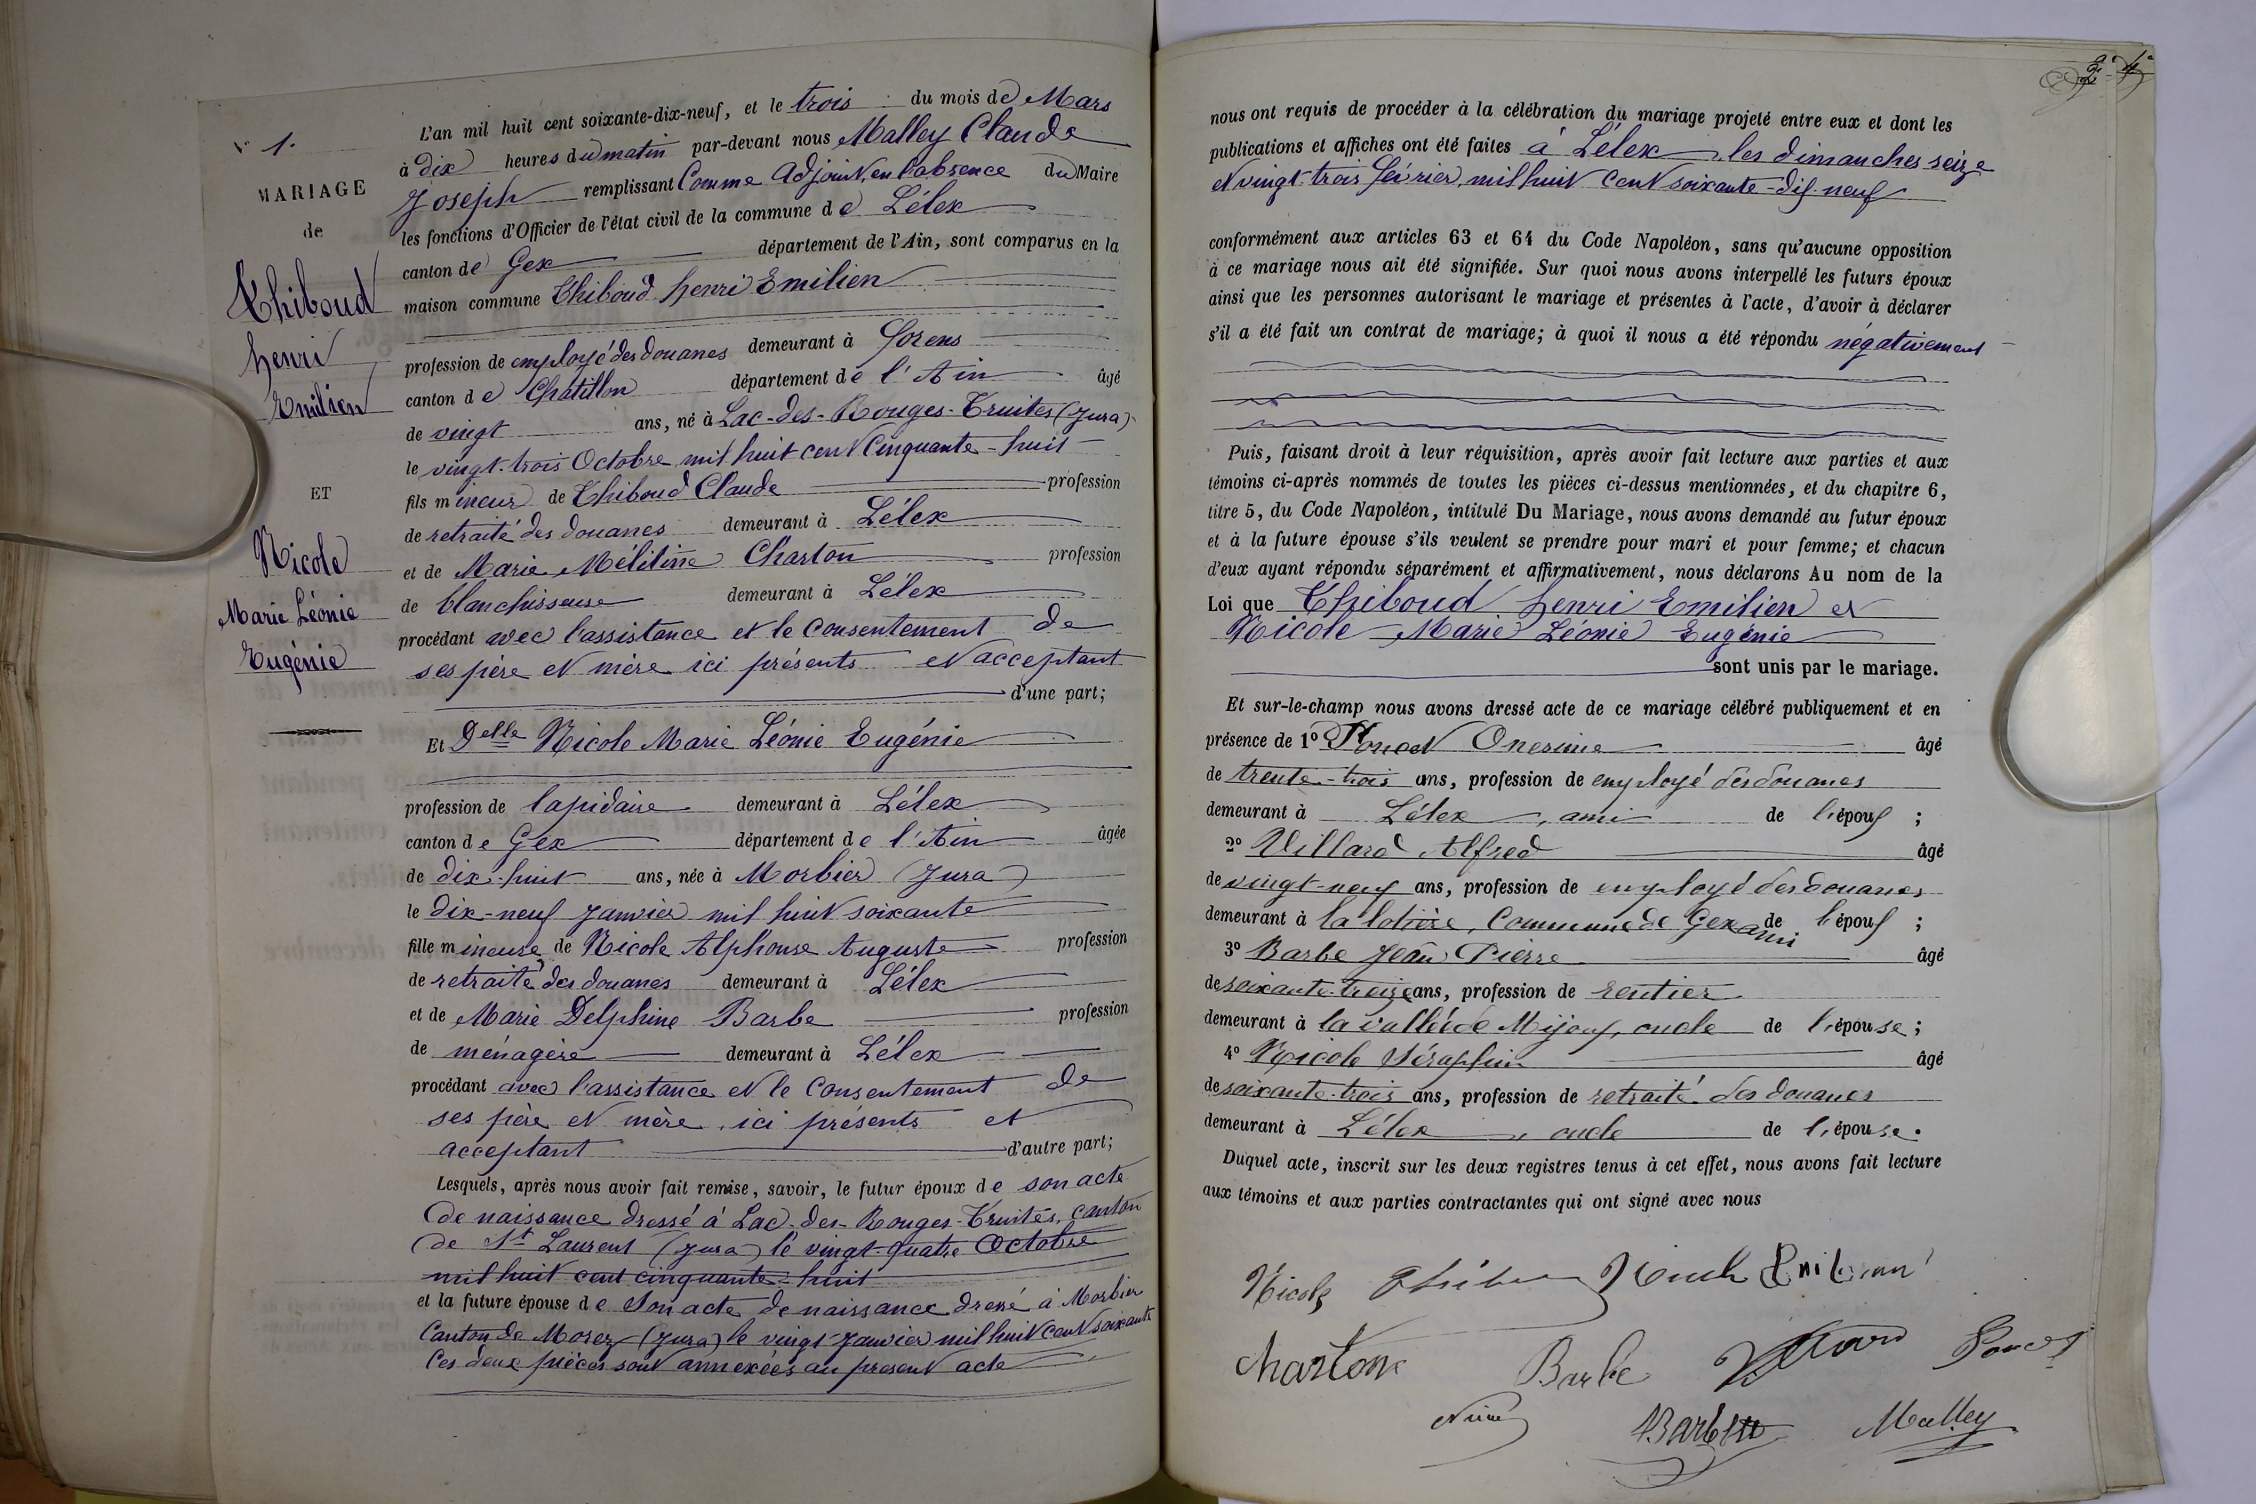 N° 1.
MARIAGE
de
Thiboud
henri
Emilien
ET
Nicole
Marie Léonie
Eugénie
L'an mil huit cent soixante-dix-neuf, et le trois du mois de Mars
à dix heures du matin par-devant nous Malley Claude
Joseph remplissant Comme Adjoint, en l'absence du Maire
les fonctions d'Officier de l'état civil de la commune de Lélex
canton de Gex département de l'Ain, sont comparus en la
maison commune Thiboud henri Emilien
profession de employé des douanes demeurant à Forens
canton de Chatillon département de l'Ain âgé
de vingt ans, né à Lac-des-Rouges-Truites (Jura)
le vingt-trois Octobre mil huit cent Cinquante-huit
fils mineur de Thiboud Claude profession
de retraité des douanes demeurant à Lélex
et de Marie Mélitine Charton profession
de blanchisseuse demeurant à Lélex
procédant avec l'assistance et le Consentement de
ses père et mère ici présents et acceptant
d'une part;
Et Delle Nicole Marie Léonie Eugénie
profession de lapidaire demeurant à Lélex
canton de Gex département de l'Ain âgée
de dix-huit ans, née à Morbier (Jura)
le dix-neuf Janvier mil huit soixante
fille mineure de Nicole Alphonse Auguste profession
de retraité des douanes demeurant à Lélex
et de Marie Delphine Barbe profession
de ménagère demeurant à Lélex
procédant avec l'assistance et le Consentement de
ses père et mère, ici présents et
acceptant d'autre part;
Lesquels, après nous avoir fait remise, savoir, le futur époux de son acte
de naissance dressé à Lac-des-Rouges-Truites, canton
de St Laurent (Jura) le vingt-quatre Octobre
mil huit cent cinquante-huit
et la future épouse de Son acte de naissance dressé à Morbier
Canton de Morez (Jura) le vingt Janvier mil huit cent soixante
Ces deux pièces sont annexées au present acte
nous ont requis de procéder à la célébration du mariage projeté entre eux et dont les
publications et affiches ont été faites à Lélex, les dimanches seize
et vingt-trois février, mil huit cent soixante-dix-neuf
conformément aux articles 63 et 64 du Code Napoléon, sans qu'aucune opposition
à ce mariage nous ait été signifiée. Sur quoi nous avons interpellé les futurs époux
ainsi que les personnes autorisant le mariage et présentes à l'acte, d'avoir à déclarer
s'il a été fait un contrat de mariage; à quoi il nous a été répondu négativement
Puis, faisant droit à leur réquisition, après avoir fait lecture aux parties et aux
témoins ci-après nommés de toutes les pièces ci-dessus mentionnées, et du chapitre 6,
titre 5, du Code Napoléon, intitulé Du Mariage, nous avons demandé au futur époux
et à la future épouse s'ils veulent se prendre pour mari et pour femme; et chacun
d'eux ayant répondu séparément et affirmativement, nous déclarons Au nom de la
Loi que Thiboud henri Emilien et
Nicole Marie Léonie Eugénie
sont unis par le mariage.
Et sur-le-champ nous avons dressé acte de ce mariage célébré publiquement et en
présence de 1° Poncet Onesime âgé
de trente-trois ans, profession de employé des douanes
demeurant à Lélex, ami de l'époux ;
2° Villard Alfred âgé
de vingt-neuf ans, profession de employé des douanes
demeurant à la Commune de Gex ami de l'époux ;
3° Barbe Jean Pierre âgé
de soixante-treize ans, profession de rentier
demeurant à la vallée de Mijoux, oncle de l'épouse;
4° Nicole Séraphin âgé
de soixante-trois ans, profession de retraité des douanes
demeurant à Lélex, oncle de l'épouse.
Duquel acte, inscrit sur les deux registres tenus à cet effet, nous avons fait lecture
aux témoins et aux parties contractantes qui ont signé avec nous
Nicole
Charton Barbe Villard Poncet
Malley